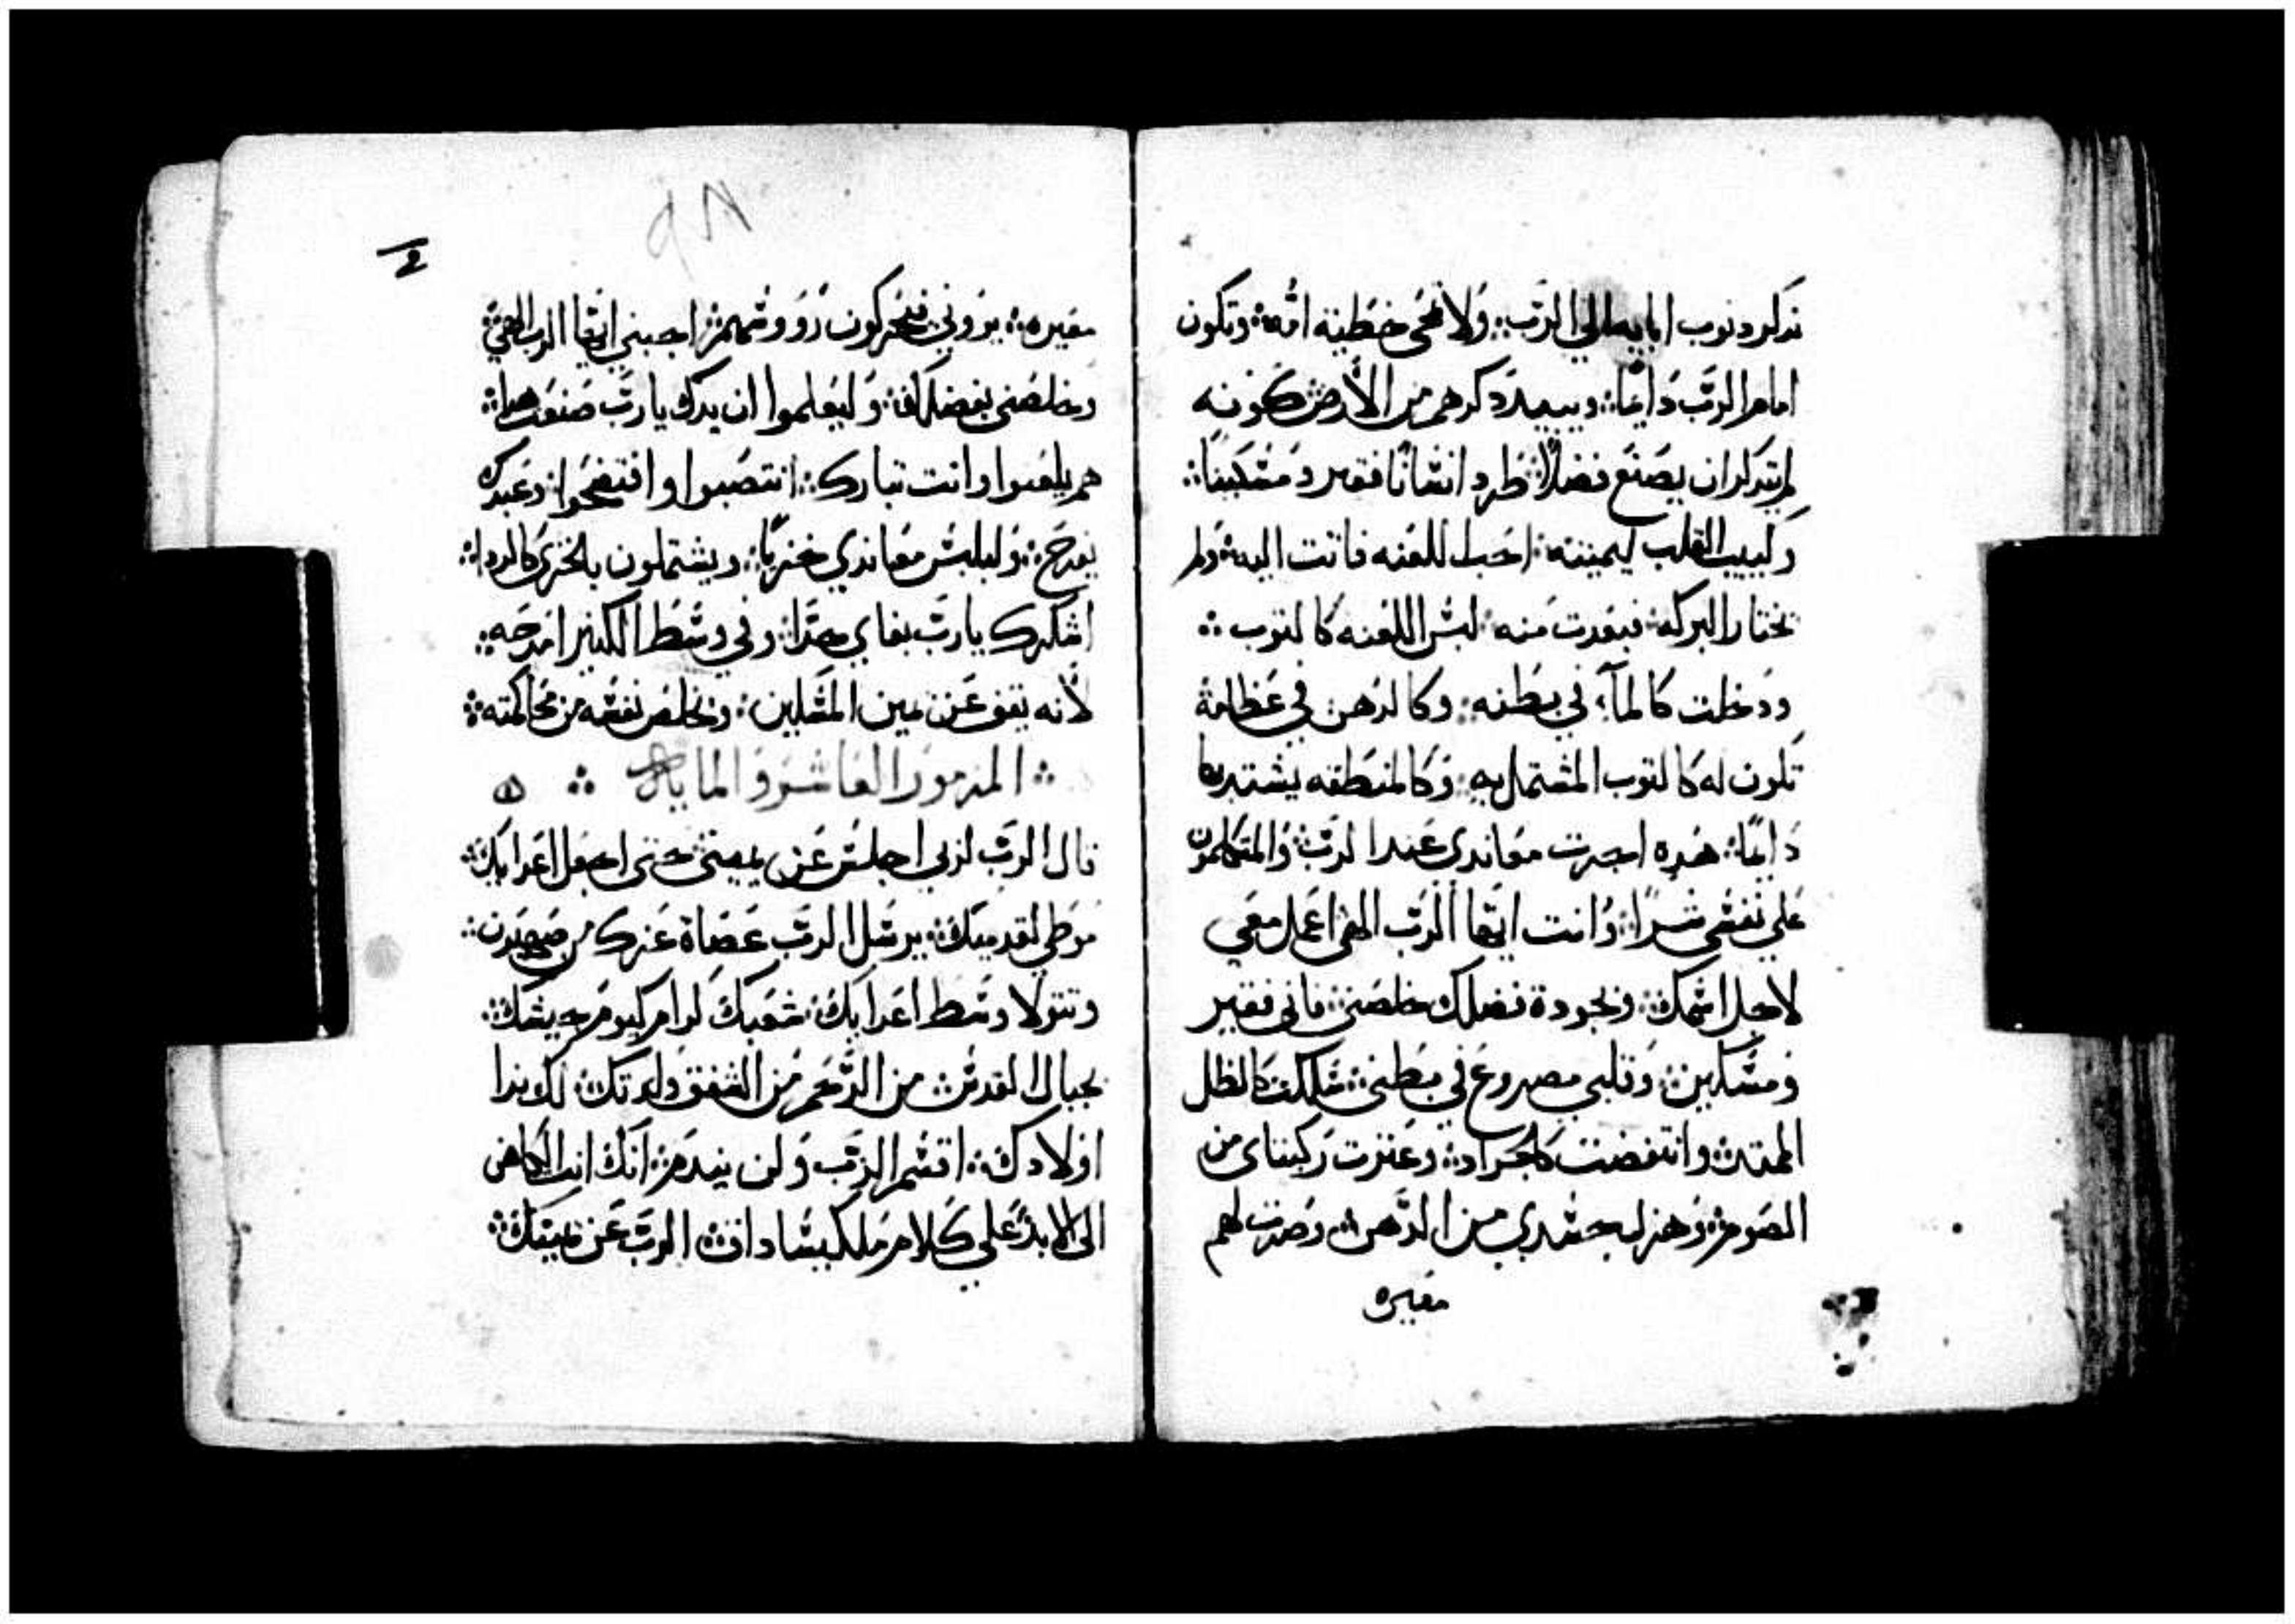 تدكر دنوب ابايه الي الرَّب ܀ ولا تمحى خطية امُّه ܀ وتكون
امام الرَّب دَايمًا ܀ ويبيد دكرهم من الأرض كونه
لم يتدكر ان يصنَع فضلاً ܀ طرد انسَانًا فقير ومَسْكينًا ܀
وكييب القلب ليميته ܀ احَب اللعنه فاتت اليه ܀ ولم
يختار البركه ܀ فبعدت منه ܀ لبس اللعنه كالتوب ܀
ودخلت كالمآء في بطنه ܀ وكالدهن في عَظامهُ
تكون له كالتوب المشتمل به ܀ وَكالمنطقه يشتد بها
دَايمًا ܀ هَده اجرت معَاندى عَند الرَّب ܀ وَالمتكلمون
عَلي نَفسْي شرًا ܀ وَانت ايَّها الرَّب الهي اعَمل معَي
لاجل اسْمك ܀ وبجودة فضلك خلصَني ܀ فاني فقير
وَمسْكين ܀ وَقلبي مصروعَ في بطني ܀ سَلكت كَالظل
المقتد ܀ وانتفضت كالجرَاد ܀ وعَترت رَكبتاى من
الصَوم ܀ وَهزل جسْدي من الدَّهن ܀ وصَرت لهم
معَيره
٩٨
معَيره ܀ يروني فيُحركون رووسُهم ܀ اجبني ايَّها الرب الهي ܀
وخلصَني بفضلك ܀ وَليعَلموا ان يدك يا ربَّ صَنعَت هدا ܀
هم يلعَنوا وانت تبارك ܀ انتصَبوا وافتضَحوا ܀ وعَبدك
يفرحَ ܀ وَليلبسْ معَاندي خزيًا ܀ ويشتملون بالخزى كالردا ܀
اشكرك يا ربَّ بفاي جدًا ܀ وفي وسَط الكتير امدحَه ܀
لأنه يقف عَن يمين المسَكين ܀ ويخلص نفسَه من محَاكمته ܀
܀ المزمور العَاشر وَالمايه ܀ ه
قال الرَّب لربي اجلسْ عَن يميني حتي اجعَل اعَدايك ܀
مَوطي لقدميك ܀ يرسَل الرب عَصَاة عَزك من صَهيَون ܀
وتتولا وسَط اعَدايك ܀ شعَبك كرام كيوم جيشك ܀
بجبال القدسْ ܀ من الرَّحَم مُن الشفق ولدتك ܀ لك ندا
اولادك ܀ اقسْم الرَّب وَلن يندَم ܀ انَك انت الكَاهن
الى الابد ܀ عَلي كَلام مَلكيسَاداق ܀ الربَّ عَن يمينك ܀